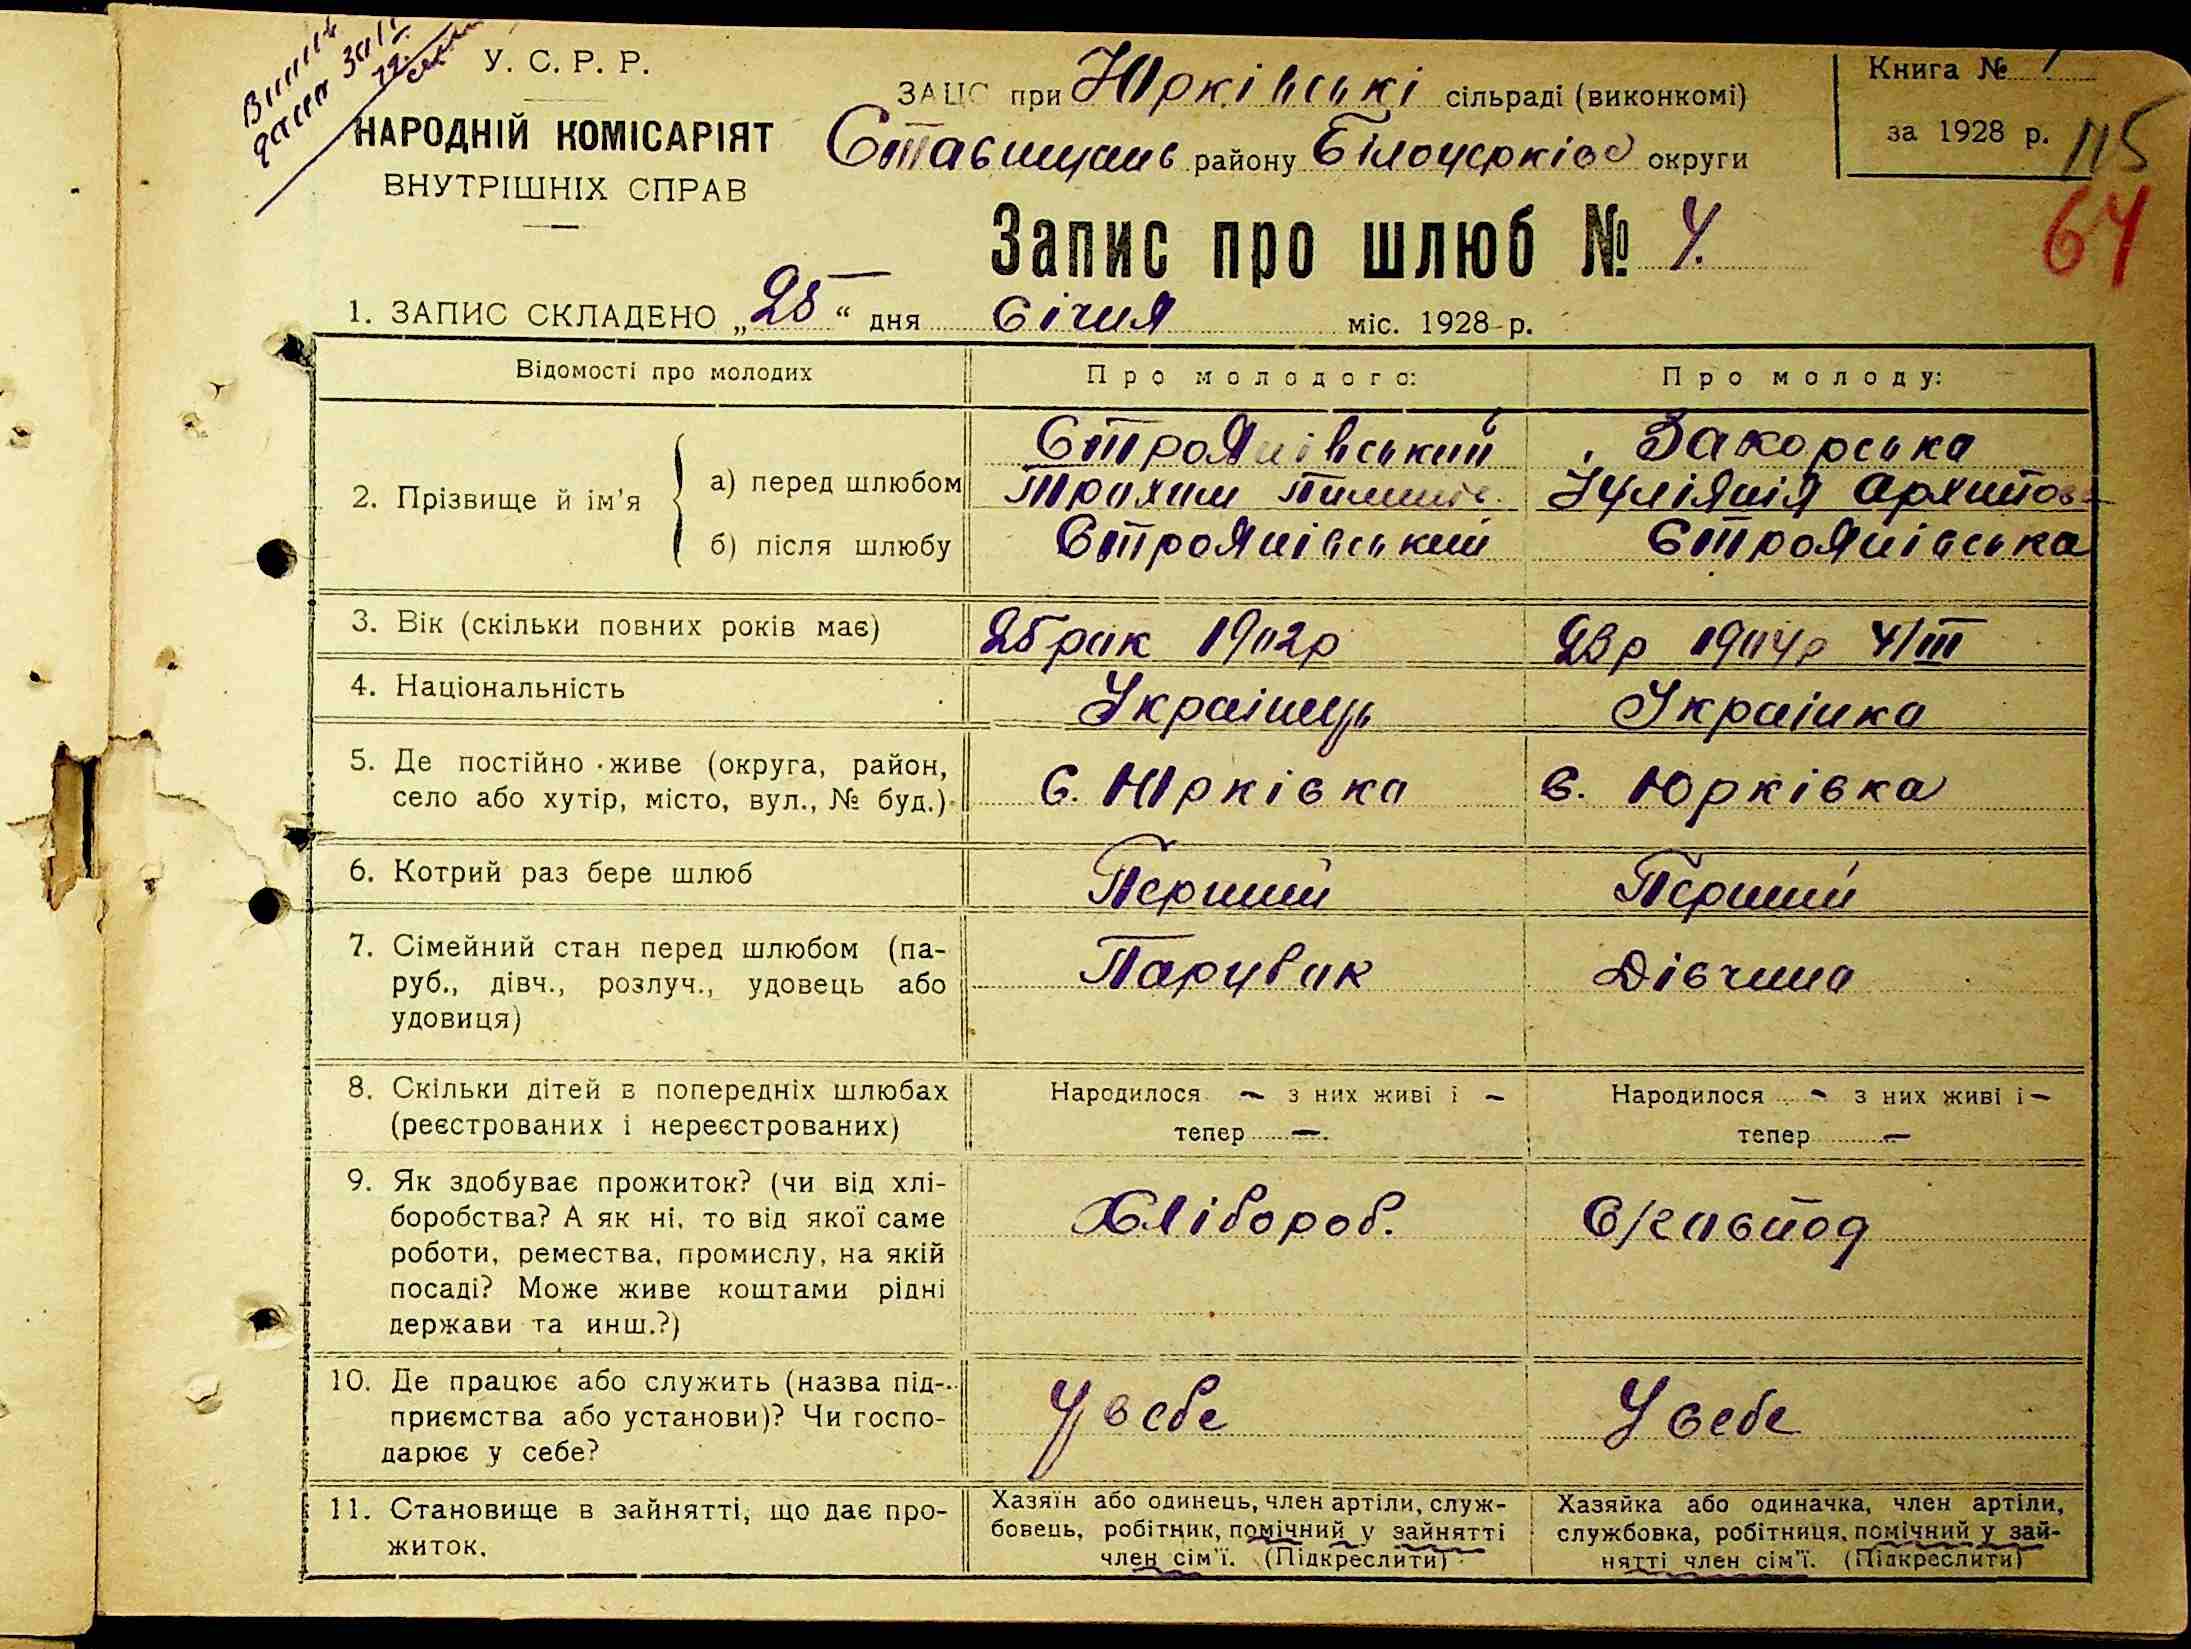 У. С. Р. Р.
НАРОДНІЙ КОМІСАРІЯТ
ВНУТРІШНІХ СПРАВ
ЗАЦС при Юрківські сільраді (виконкомі)
Ставищань району Білоцерківс округи
Книга №
за 1928 р.
115
64
Запис про шлюб № 4.
1. ЗАПИС СКЛАДЕНО „25“ дня Січня міс. 1928 р.
Відомості про молодих
Про молодого:
Про молоду:
2. Прізвище й ім'я
а) перед шлюбом
Строянівський
Трохим
Закорська
Іуліянія Архипов
б) після шлюбу
Строянівський
Строянівська
3. Вік (скільки повних років має)
25 рок 1902р
23 р 1904р 4/III
4. Національність
Українець
Українка
5. Де постійно живе (округа, район,
село або хутір, місто, вул., № буд.)
с. Юрківка
с. Юрківка
6. Котрий раз бере шлюб
Перший
Перший
7. Сімейний стан перед шлюбом (па-
руб., дівч., розлуч., удовець або
удовиця)
Парубок
Дівчина
8. Скільки дітей в попередніх шлюбах
(реєстрованих і нереєстрованих)
Народилося — з них живі і —
тепер —
Народилося — з них живі і —
тепер —
9. Як здобуває прожиток? (чи від хлі-
боробства? А як ні, то від якої саме
роботи, ремества, промислу, на якій
посаді? Може живе коштами рідні
держави та инш.?)
Хлібороб.
С/господ
10. Де працює або служить (назва під-
приємства або установи)? Чи госпо-
дарює у себе?
У себе
У себе
11. Становище в зайнятті, що дає про-
житок.
Хазяїн або одинець, член артіли, служ-
бовець, робітник, помічний у зайнятті
член сім'ї. (Підкреслити)
Хазяйка або одиначка, член артіли,
службовка, робітниця, помічний у зай-
нятті член сім'ї. (Підкреслити)